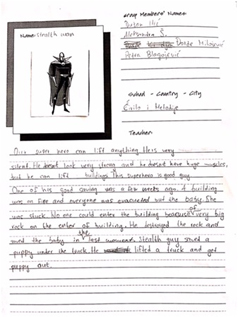 Group Members' Names:
Name: Stealth man
Aleksandra S
Đorđe
Petra Blagojević
School - Country - City
Teacher:
Our super hero can lift anything. He is very
silent. He doesnt look very strong and he doesnt have huge muscles,
but he can lift buildings. This superhero is good guy.
One of his good saving was a few weeks ago. A building
was on fire and everyone was evacuated but the baby. She
was stuck. No one could enter the building because of very big
rock on the enter of building. He destroyed the rock and
saved the baby in the last moment. Stealth guy saved a
puppy under the truck. He lifted a truck and get
puppy out.